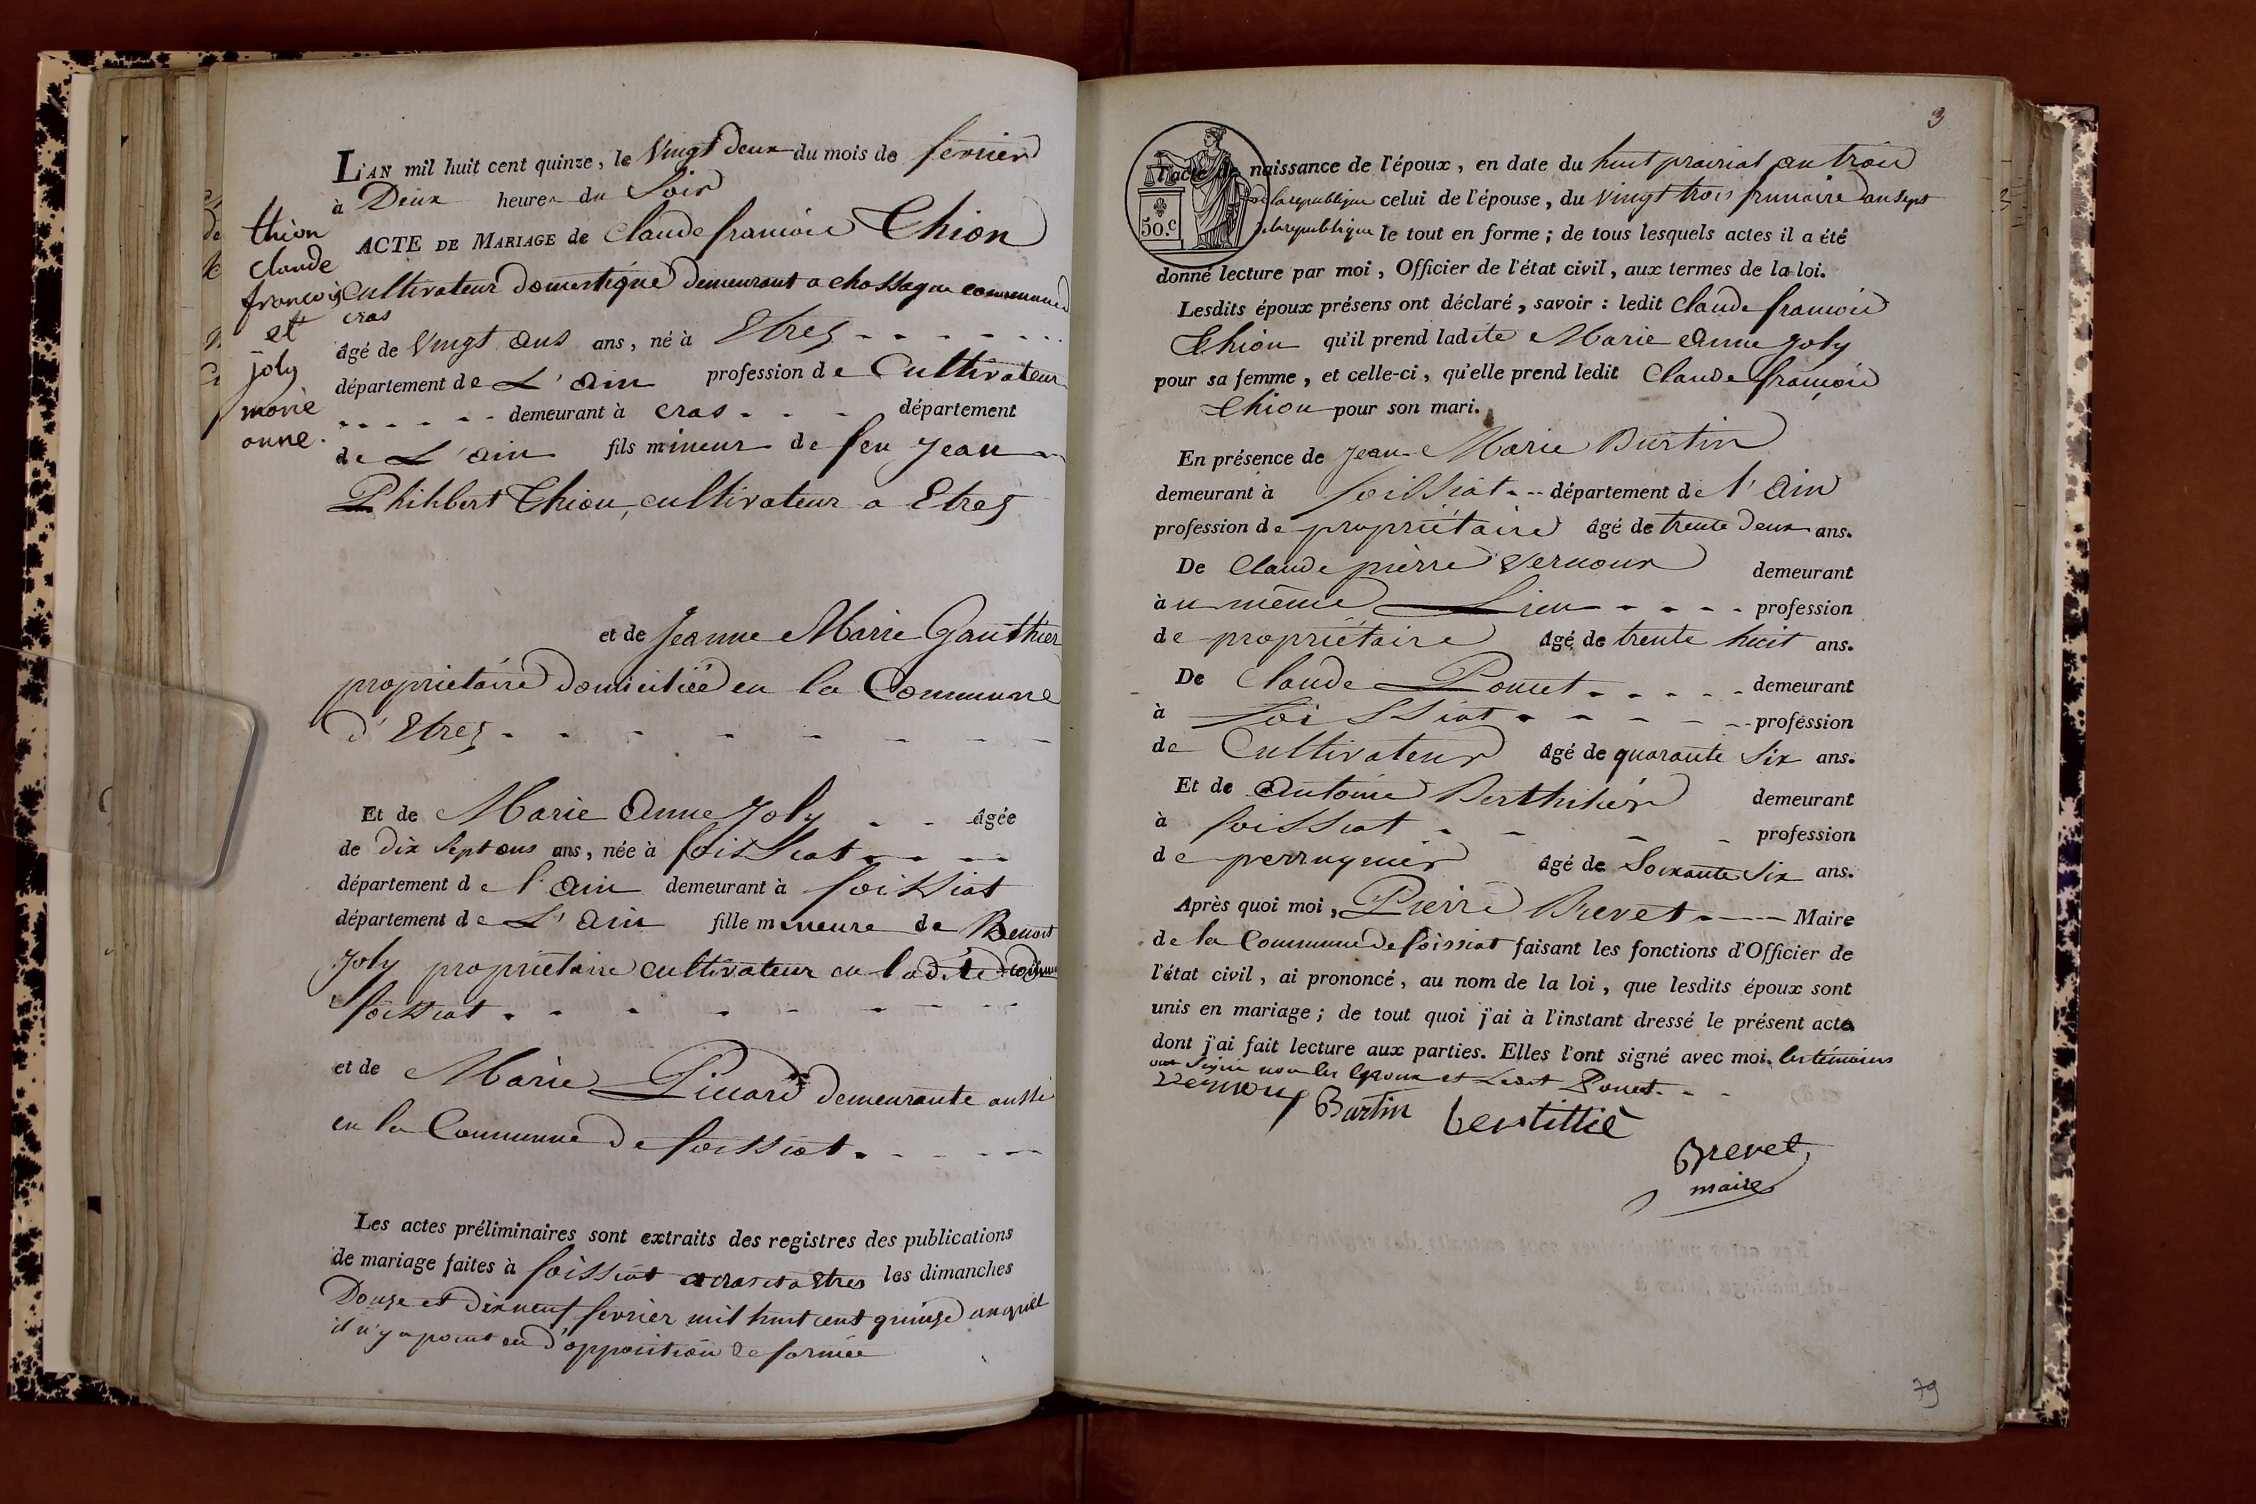 L'AN mil huit cent quinze, le Vingt deux du mois de fevrier
à Deux heures du Soir
ACTE DE MARIAGE de Claude francois Thion
thion
claude
francois
et
joly
marie
anne.
Cultivateur domestique demeurant a chassagne commune
cras
âgé de Vingt ans ans, né à Etrez
département de L'ain profession de Cultivateur
demeurant à cras département
de L'ain fils mineur de feu Jean
Philibert Thion, cultivateur a Etrez
et de Jeanne Marie Gauthier
proprietaire domiciliée en la Commune
d'Etrez
Et de Marie Anne Joly âgée
de dix Sept ans ans, née à foissiat
département de l'ain demeurant à foissiat
département de L'ain fille mineure de Benoit
Joly propriétaire cultivateur en ladite
foissiat
et de Marie Picard demeurante aussi
en la Commune de foissiat.
Les actes préliminaires sont extraits des registres des publications
de mariage faites à foissiat a cras et a Etres les dimanches
Douze et dixneuf fevrier mil huit cent quinze
il n'y a point eu d'opposition de formée
3
50.c
l'acte de naissance de l'époux, en date du huit prairial an trois
de la republique celui de l'épouse, du vingt trois frimaire an Sept
de la republique le tout en forme; de tous lesquels actes il a été
donné lecture par moi, Officier de l'état civil, aux termes de la loi.
Lesdits époux présens ont déclaré, savoir : ledit Claude francois
Thion qu'il prend ladite Marie Anne Joly
pour sa femme, et celle-ci, qu'elle prend ledit Claude françois
Thion pour son mari.
En présence de Jean Marie Burtin
demeurant à foissiat département de l'Ain
profession de propriétaire âgé de trente deux ans.
De Claude pierre Vernoux demeurant
à u même Lieu profession
de propriétaire âgé de trente huit ans.
De Claude Poncet demeurant
à foissiat profession
de Cultivateur âgé de quarante Six ans.
Et de antoine Berthilier demeurant
à foissiat profession
de perruquier âgé de Soixante Six ans.
Après quoi moi, Pierre Brevet Maire
de la Commune de foissiat faisant les fonctions d'Officier de
l'état civil, ai prononcé, au nom de la loi, que lesdits époux sont
unis en mariage; de tout quoi j'ai à l'instant dressé le présent acte
dont j'ai fait lecture aux parties. Elles l'ont signé avec moi. les témoins
ont Signé non les Epoux et Ledit Poncet.
Vernoux Burtin bertillié
Brevet
maire
79